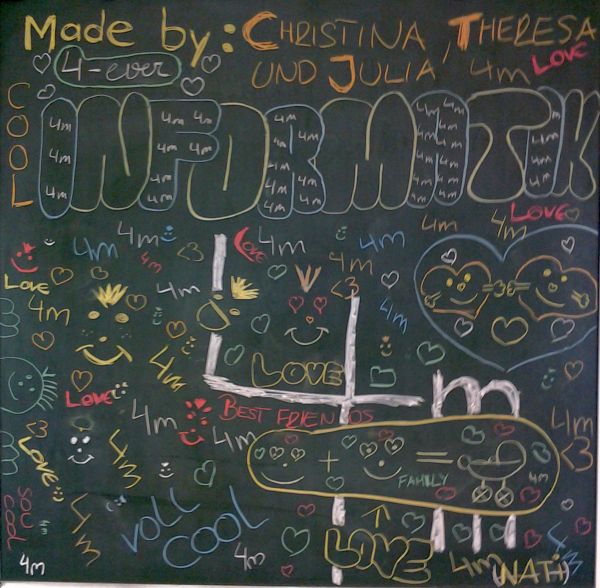 Made by: CHRISTINA, THERESA
UND JULIA 4m LOVE
4-ever
COOL
INFORMATIK
4m 4m 4m 4m 4m 4m 4m
4m 4m 4m 4m 4m 4m
4m 4m 4m 4m 4m 4m
4m 4m LOVE
4m 4m LOVE 4m 4m
4m <3 4m
LOVE 4m 4m <3
4m 4m
4m LOVE
LOVE 4m
BEST FRIENDS
4m 4m 4m
<3 <3
LOVE 4m + = 4m
FAMILY
SOO COOL
4m 4m VOLL COOL
LOVE
4m 4m 4m NATHI